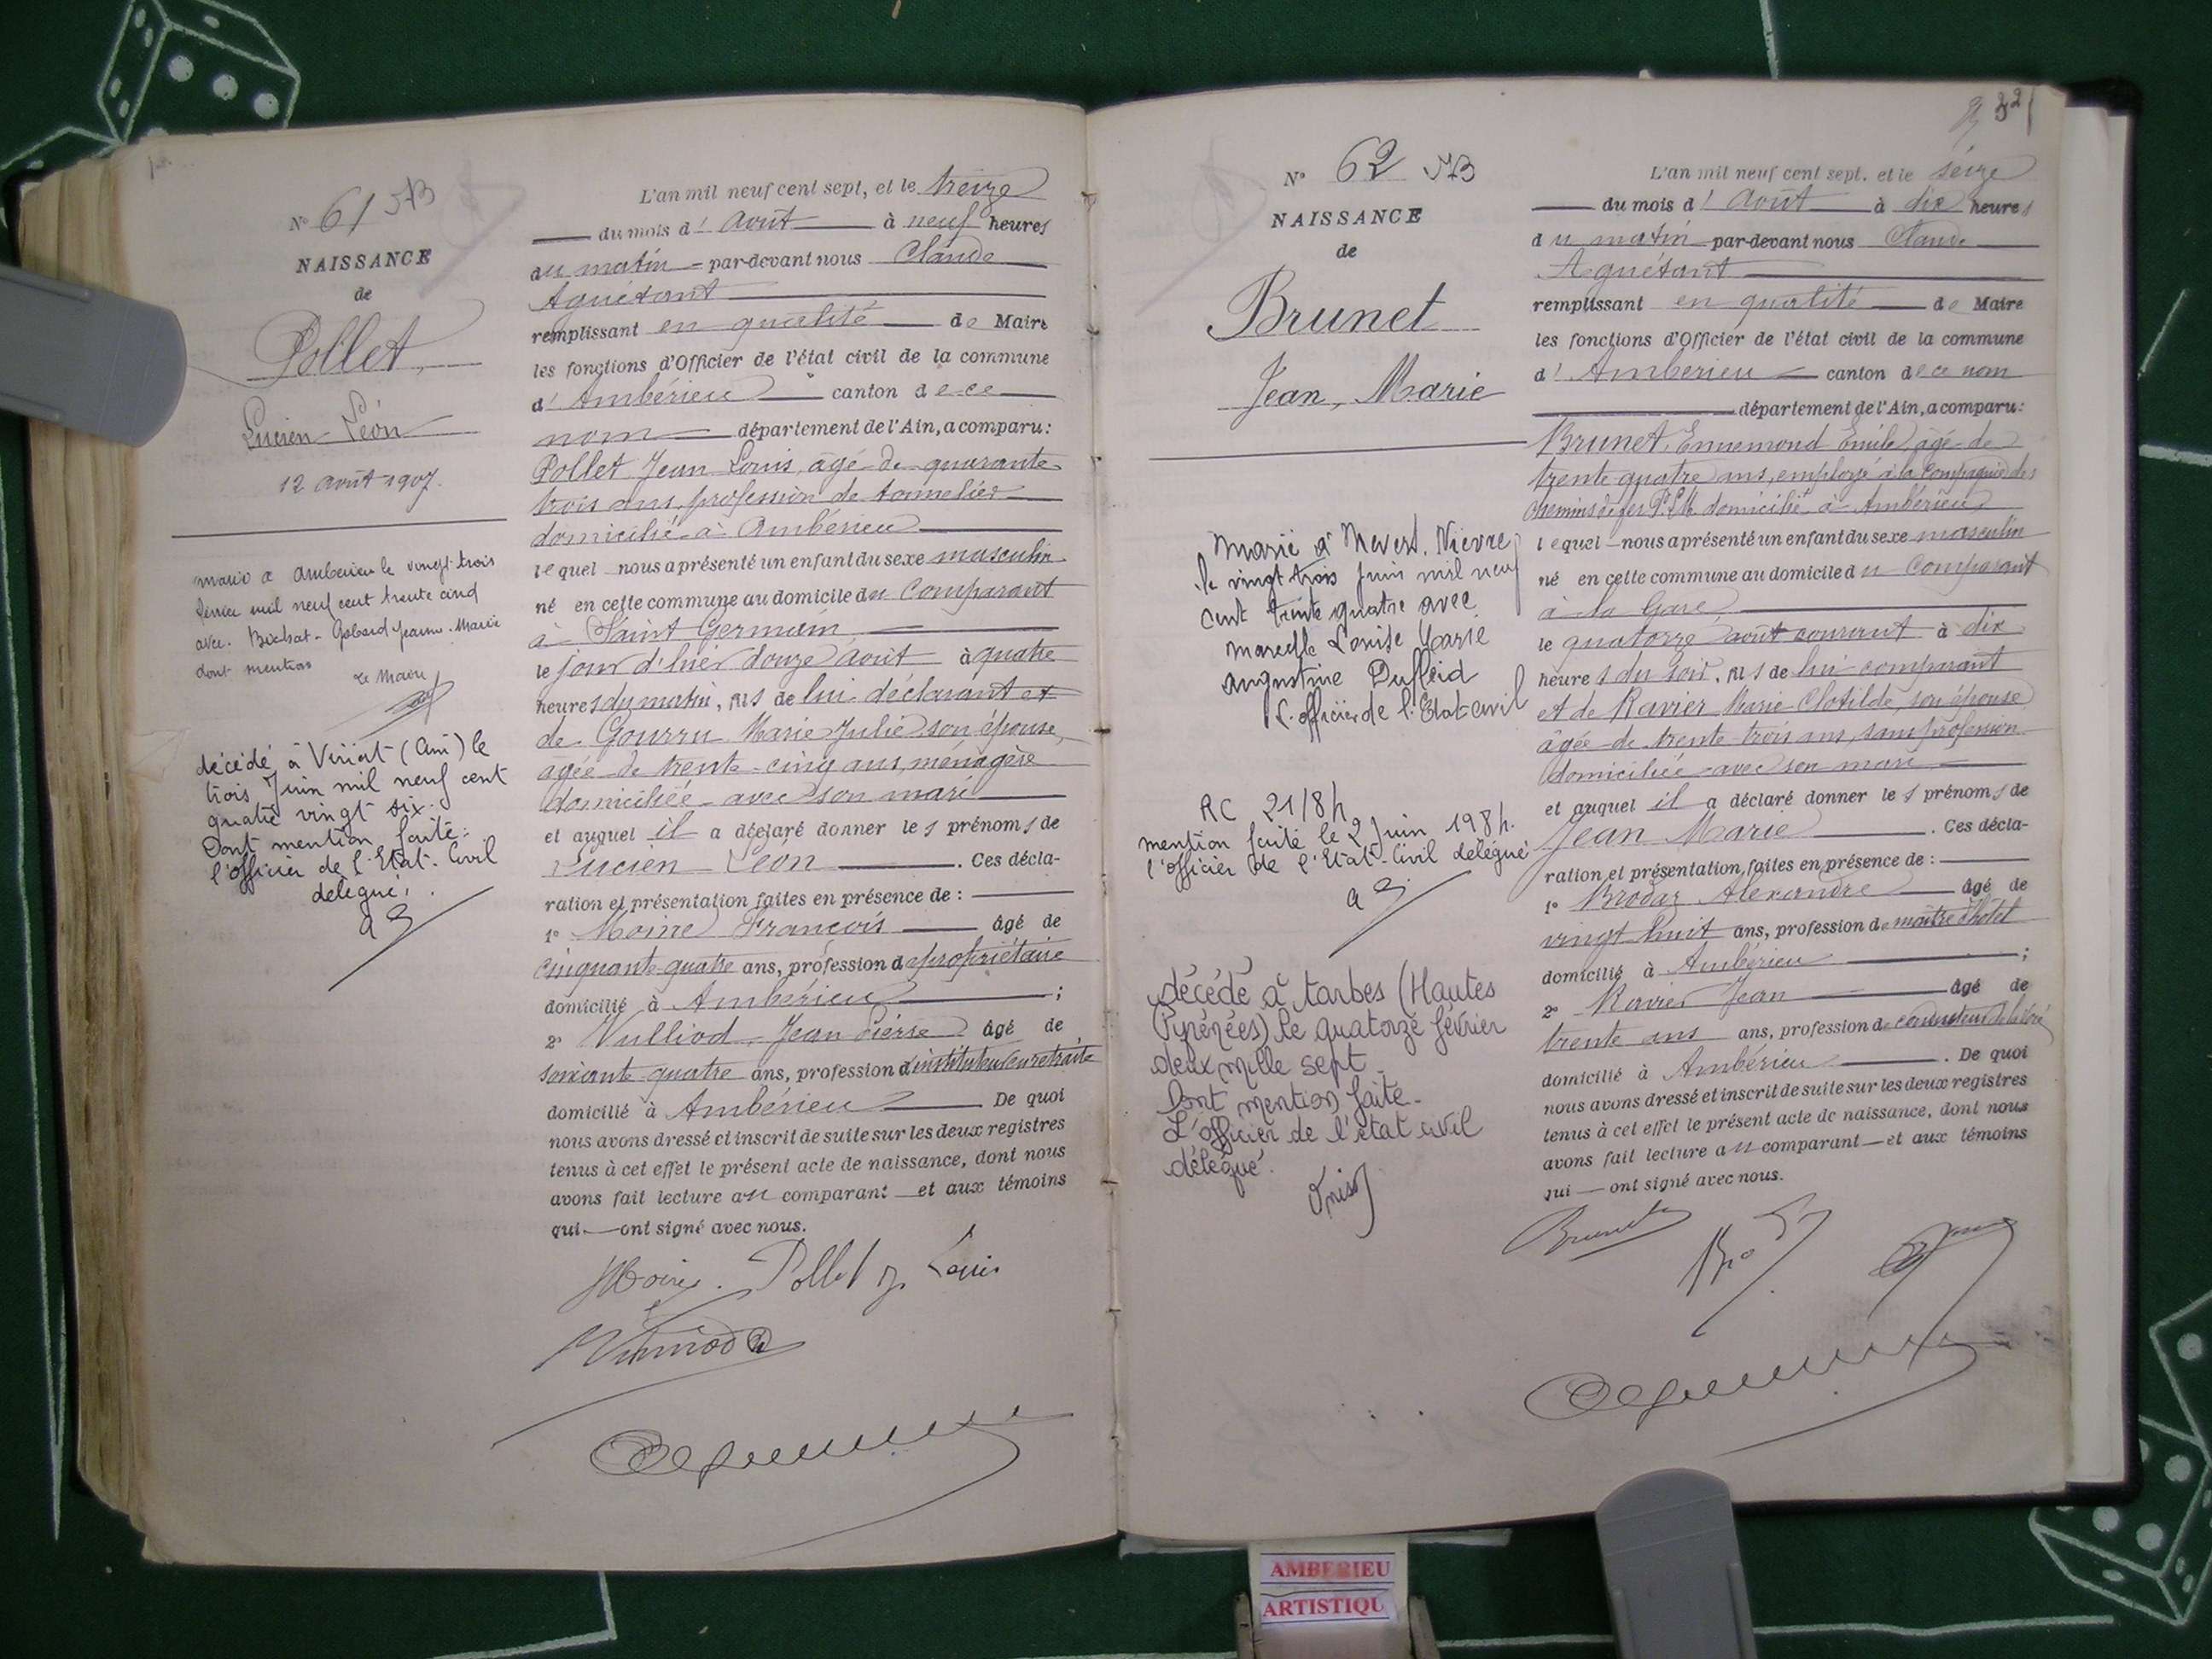 N° 61
NAISSANCE
de
Pollet
Lucien Léon
12 août 1907.
marié à Ambérieu le vingt-trois
mil neuf cent trente cinq
avec Bochat-Gobard Jeanne-Marie
dont mention
Le Maire
décédé à Viriat (Ain) le
trois Juin mil neuf cent
quatre vingt six.
Dont mention faite:
l'officier de l'Etat-Civil
délégué,
L'an mil neuf cent sept, et le treize
du mois d' Août à neuf heures
du matin par-devant nous Claude
Aguétant
remplissant en qualité de Maire
les fonctions d'Officier de l'état civil de la commune
d' Ambérieu canton de ce
nom département de l'Ain, a comparu:
Pollet Jean Louis, âgé de quarante
trois ans, profession de tonnelier
domicilié à Ambérieu
lequel nous a présenté un enfant du sexe masculin
né en cette commune au domicile du Comparant
à Saint Germain
le jour d'hier douze août à quatre
heures du matin, fils de lui déclarant et
de Gourru Marie Julie son épouse,
agée de trente-cinq ans, ménagère
domiciliée avec son mari
et auquel il a déclaré donner les prénoms de
Lucien Léon . Ces décla-
ration et présentation faites en présence de :
1° Moine François âgé de
cinquante-quatre ans, profession de propriétaire
domicilié à Ambérieu ;
2° Vulliod Jean Pierre âgé de
soixante quatre ans, profession d'instituteur en retraite
domicilié à Ambérieu De quoi
nous avons dressé et inscrit de suite sur les deux registres
tenus à cet effet le présent acte de naissance, dont nous
avons fait lecture au comparant et aux témoins
qui ont signé avec nous.
Moine. Pollet J. Louis
N° 62
NAISSANCE
de
Brunet
Jean, Marie
Marié à Nevers. Nièvre
le vingt trois juin mil neuf
cent trente quatre avec
Marcelle Louise Marie
Augustine Duffeid
L'officier de l'Etat civil
RC 21/84
mention faite le 2 Juin 1984.
l'officier de l'Etat-Civil délégué
décédé à Tarbes (Hautes
Pyrénées) le quatorze février
deux mille sept.
Dont mention faite.
L'officier de l'état civil
délégué.
L'an mil neuf cent sept, et le seize
du mois d' Août à dix heures
du matin par-devant nous Claude
Aguétant
remplissant en qualité de Maire
les fonctions d'Officier de l'état civil de la commune
d' Ambérieu canton de ce nom
département de l'Ain, a comparu:
Brunet, Ennemond Emile, âgé de
trente quatre ans, employé à la Compagnie des
Chemins de fer P.L.M. domicilié à Ambérieu
lequel nous a présenté un enfant du sexe masculin
né en cette commune au domicile du Comparant
à la Gare
le quatorze août courant à dix
heures du soir, fils de lui comparant
et de Ravier Marie Clotilde, son épouse
âgée de trente trois ans, sans profession
domiciliée avec son mari
et auquel il a déclaré donner les prénoms de
Jean Marie . Ces décla-
ration et présentation faites en présence de :
1° Brodaz Alexandre âgé de
vingt huit ans, profession de maître d'hôtel
domicilié à Ambérieu ;
2° Ravier Jean âgé de
trente ans ans, profession de
domicilié à Ambérieu . De quoi
nous avons dressé et inscrit de suite sur les deux registres
tenus à cet effet le présent acte de naissance, dont nous
avons fait lecture au comparant et aux témoins
qui ont signé avec nous.
Brunet
AMBERIEU
ARTISTIQU